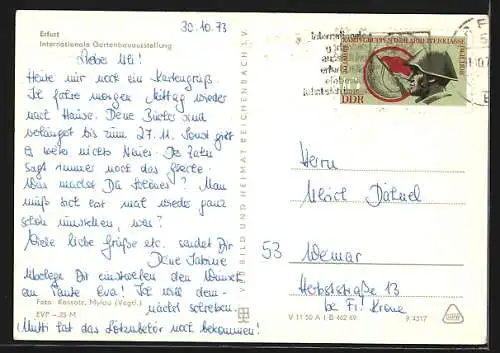 30.10.73
Erfurt
Internationale Gartenbauausstellung
Liebe Uli!
Heute nur noch ein Kartengruß.
Ich fahre morgen Mittag wieder
nach Hause. Deine Bücher sind
verlängert bis zum 27.11. Sonst gibt
es weiter nichts Neues. Der Zahn
sagt immer noch das
Was machst Du Schönes? Man
muß sich erst mal wieder ganz
schön umstellen, was?
Viele liebe Grüße etc. sendet Dir
Deine Sabine
Dir einstweilen den Wunsch
an Tante Eva! Ich will dem-
nächst schreiben.
Foto: Mylau (Vogtl.)
EVP -,25 M
Mutti hat das noch bekommen!
VEB BILD UND HEIMAT REICHENBACH I. V.
Internationalen
20 JAHRE KAMPFGRUPPEN DER ARBEITERKLASSE DER DDR
DDR
Herrn
Ulrich
53 Weimar
Herbststraße 13
bei Fr. Krone
V 11 50 A 1 B 462 69
9 4317